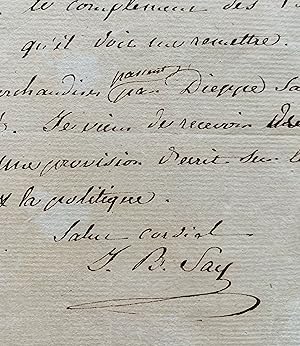 le complement des
qu'il doit me remettre.
passent
par Dieppe
Je viens de recevoir
une provision d'ecrit sur
& la politique.
Salut cordial
J. B. Say